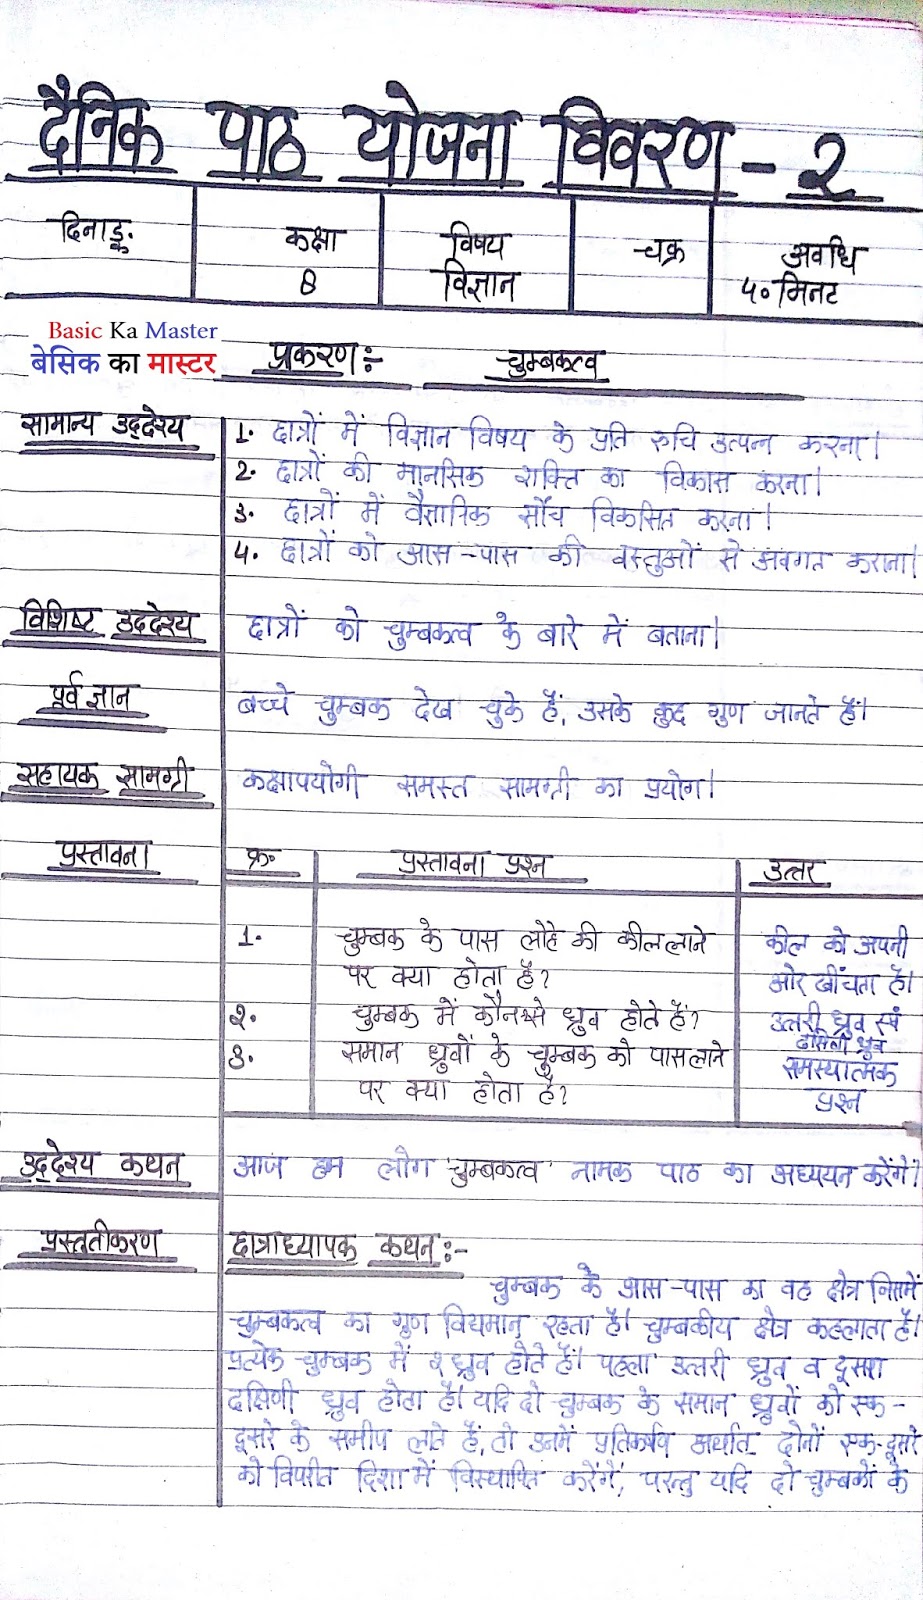 दैनिक पाठ योजना विवरण - २
दिनाङ्क कक्षा विषय चक्र अवधि
8 विज्ञान ५० मिनट
Basic Ka Master
बेसिक का मास्टर
प्रकरण :- चुम्बकत्व
सामान्य उद्देश्य 1. छात्रों में विज्ञान विषय के प्रति रुचि उत्पन्न करना।
2. छात्रों की मानसिक शक्ति का विकास करना।
3. छात्रों में वैज्ञानिक सोंच विकसित करना।
4. छात्रों को आस-पास की वस्तुओं से अवगत कराना।
विशिष्ट उद्देश्य छात्रों को चुम्बकत्व के बारे में बताना।
पूर्व ज्ञान बच्चे चुम्बक देख चुके हैं, उसके कुछ गुण जानते हैं।
सहायक सामग्री कक्षापयोगी समस्त सामग्री का प्रयोग।
प्रस्तावना क्र. प्रस्तावना प्रश्न उत्तर
1. चुम्बक के पास लोहे की कील लाने कील को अपनी
पर क्या होता है? ओर खींचता है।
2. चुम्बक में कौन से ध्रुव होते हैं? उत्तरी ध्रुव एवं
दक्षिणी ध्रुव
3. समान ध्रुवों के चुम्बक को पास लाने समस्यात्मक
पर क्या होता है? प्रश्न
उद्देश्य कथन आज हम लोग 'चुम्बकत्व' नामक पाठ का अध्ययन करेंगें।
प्रस्तुतीकरण छात्राध्यापक कथन :-
चुम्बक के आस-पास का वह क्षेत्र जिसमें
चुम्बकत्व का गुण विद्यमान रहता है। चुम्बकीय क्षेत्र कहलाता है।
प्रत्येक चुम्बक में २ ध्रुव होते हैं। पहला उत्तरी ध्रुव व दूसरा
दक्षिणी ध्रुव होता है। यदि दो चुम्बक के समान ध्रुवों को एक-
दूसरे के समीप लाते हैं, तो उनमें प्रतिकर्षण अर्थात दोनों एक-दूसरे
को विपरीत दिशा में विस्थापित करेंगें, परन्तु यदि दो चुम्बकों के